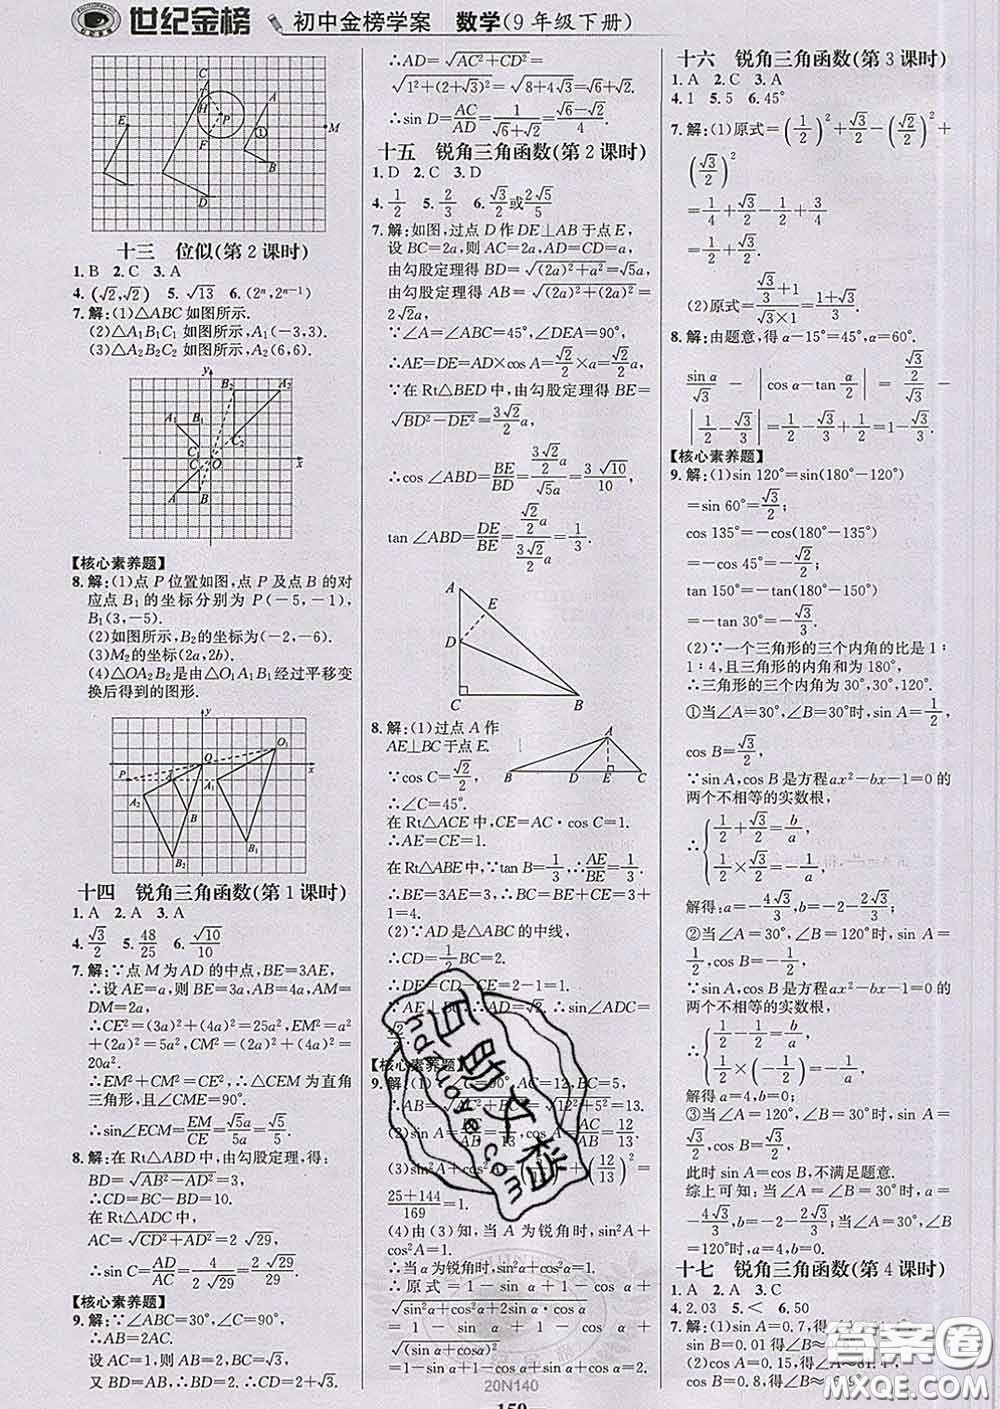 世纪金榜 初中金榜学案 数学(9年级下册)
十三 位似(第2课时)
1.B 2.C 3.A
4.(√2,√2) 5.√13 6.(2ⁿ,2ⁿ⁻¹)
7.解:(1)△ABC如图所示.
(2)△A₁B₁C₁如图所示,A₁(-3,3).
(3)△A₂B₂C₂如图所示,A₂(6,6).
【核心素养题】
8.解:(1)点P位置如图,点P及点B的对
应点B₁的坐标分别为P(-5,-1),
B₁(3,-5).
(2)如图所示,B₂的坐标为(-2,-6).
(3)M₂的坐标(2a,2b).
(4)△OA₂B₂是由△O₁A₁B₁经过平移变
换后得到的图形.
十四 锐角三角函数(第1课时)
1.A 2.A 3.A
4.√3/2 5.48/25 6.√10/10
7.解:∵点M为AD的中点,BE=3AE,
∴设AE=a,则BE=3a,AB=4a,AM=
DM=2a;
∴CE²=(3a)²+(4a)²=25a²,EM²=a²
+(2a)²=5a²,CM²=(2a)²+(4a)²=
20a².
∴EM²+CM²=CE²,∴△CEM为直角
三角形,且∠CME=90°.
∴sin∠ECM=EM/CE=√5a/5a=√5/5.
8.解:在Rt△ABD中,由勾股定理,得:
BD=√(AB²-AD²)=3,
∴CD=BC-BD=10.
在Rt△ADC中,
AC=√(CD²+AD²)=2√29,
∴sin C=AD/AC=4/(2√29)=2√29/29.
【核心素养题】
9.解:∵∠ABC=30°,∠C=90°,
∴AB=2AC.
设AC=1,则AB=2,BC=√3,
又BD=AB=2,∴CD=2+√3.
∴AD=√(AC²+CD²)=
√(1²+(2+√3)²)=√(8+4√3)=√6+√2.
∴sin D=AC/AD=1/(√6+√2)=(√6-√2)/4.
十五 锐角三角函数(第2课时)
1.D 2.C 3.D
4.1/2 5.2/3 6.√3/2或2√5/5
7.解:如图,过点D作DE⊥AB于点E,
设BC=2a,则AC=2a,AD=CD=a,
由勾股定理得BD=√((2a)²+a²)=√5a,
由勾股定理得AB=√((2a)²+(2a)²)=
2√2a,
∵∠A=∠ABC=45°,∠DEA=90°.
∴AE=DE=AD×cos A=√2/2×a=√2/2a.
∵在Rt△BED中,由勾股定理得BE=
√(BD²-DE²)=3√2/2a,
∴cos∠ABD=BE/BD=(3√2/2a)/(√5a)=3√10/10,
tan∠ABD=DE/BE=(√2/2a)/(3√2/2a)=1/3.
8.解:(1)过点A作
AE⊥BC于点E.
∵cos C=√2/2,
∴∠C=45°.
在Rt△ACE中,CE=AC·cos C=1.
∴AE=CE=1.
在Rt△ABE中,∵tan B=1/3,∴AE/BE=1/3.
∴BE=3AE=3.∴BC=BE+CE=3+
1=4.
(2)∵AD是△ABC的中线,
∴CD=1/2BC=2.
∴DE=CD-CE=2-1=1.
∵AE⊥BC,∴AD=√2.∴sin∠ADC=
√2/2.
【核心素养题】
9.解:(1)∵∠C=90°,AC=12,BC=5,
∴AB=√(AC²+BC²)=√(12²+5²)=13.
(2)sin A=BC/AB=5/13,cos A=AC/AB=12/13.
(3)sin²A+cos²A=(5/13)²+(12/13)²=
(25+144)/169=1.
(4)由(3)知,当A为锐角时,sin²A+
cos²A=1.
∴当α为锐角时,sin²α+cos²α=1.
∴原式=1-sin α+1-cos α+
√(sin²α+cos²α+2sin αcos α)
=1-sin α+1-cos α+
√((sin α+cosα)²)
=1-sin α+1-cos α+sin α+cos α=2.
十六 锐角三角函数(第3课时)
1.A 2.C 3.A
4.1 5.5 6.45°
7.解:(1)原式=(1/2)²+√3/2-(√2/2)²+
(√3/2)²
=1/4+√3/2-1/2+3/4
=1/2+√3/2.
(2)原式=(√3/3+1)/(√3×1)=(1+√3)/3.
8.解:由题意,得α-15°=45°,α=60°.
sin α/√3-|cos α-tan α/2|=(√3/2)/√3-
|1/2-√3/3|=1/2-√3/3+1/2=1-√3/3.
【核心素养题】
9.解:(1)sin 120°=sin(180°-120°)
=sin 60°=√3/2,
cos 135°=-cos(180°-135°)
=-cos 45°=-√2/2,
tan 150°=-tan(180°-150°)
=-tan 30°=-√3/3.
(2)∵一个三角形的三个内角的比是1∶
1∶4,且三角形的内角和为180°,
∴三角形的三个内角为30°,30°,120°.
①当∠A=30°,∠B=30°时,sin A=1/2,
cos B=√3/2,
∵sin A,cos B是方程ax²-bx-1=0的
两个不相等的实数根,
∴{1/2+√3/2=b/a,
1/2×√3/2=-1/a,
解得:a=-4√3/3,b=-2-2√3/3.
②当∠A=30°,∠B=120°时,sin A=1/2,
cos B=-1/2,
∵sin A,cos B是方程ax²-bx-1=0的
两个不相等的实数根,
∴{1/2-1/2=b/a,
1/2×(-1/2)=-1/a,
解得a=4,b=0;
③当∠A=120°,∠B=30°时,sin A=√3/2,
cos B=√3/2,
此时sin A=cos B,不满足题意.
综上可知:当∠A=30°,∠B=30°时,a=
-4√3/3,b=-2-2√3/3;当∠A=30°,∠B=
120°时,a=4,b=0.
十七 锐角三角函数(第4课时)
1.A 2.A 3.C
4.2.03 5.< 6.50
7.解:(1)sin A=0.7,得
sin B=0.01,得
(2)cos A=0.15,得∠A≈
cos B=0.8,得∠B≈
20N140
150
答案圈
MXQE.COM